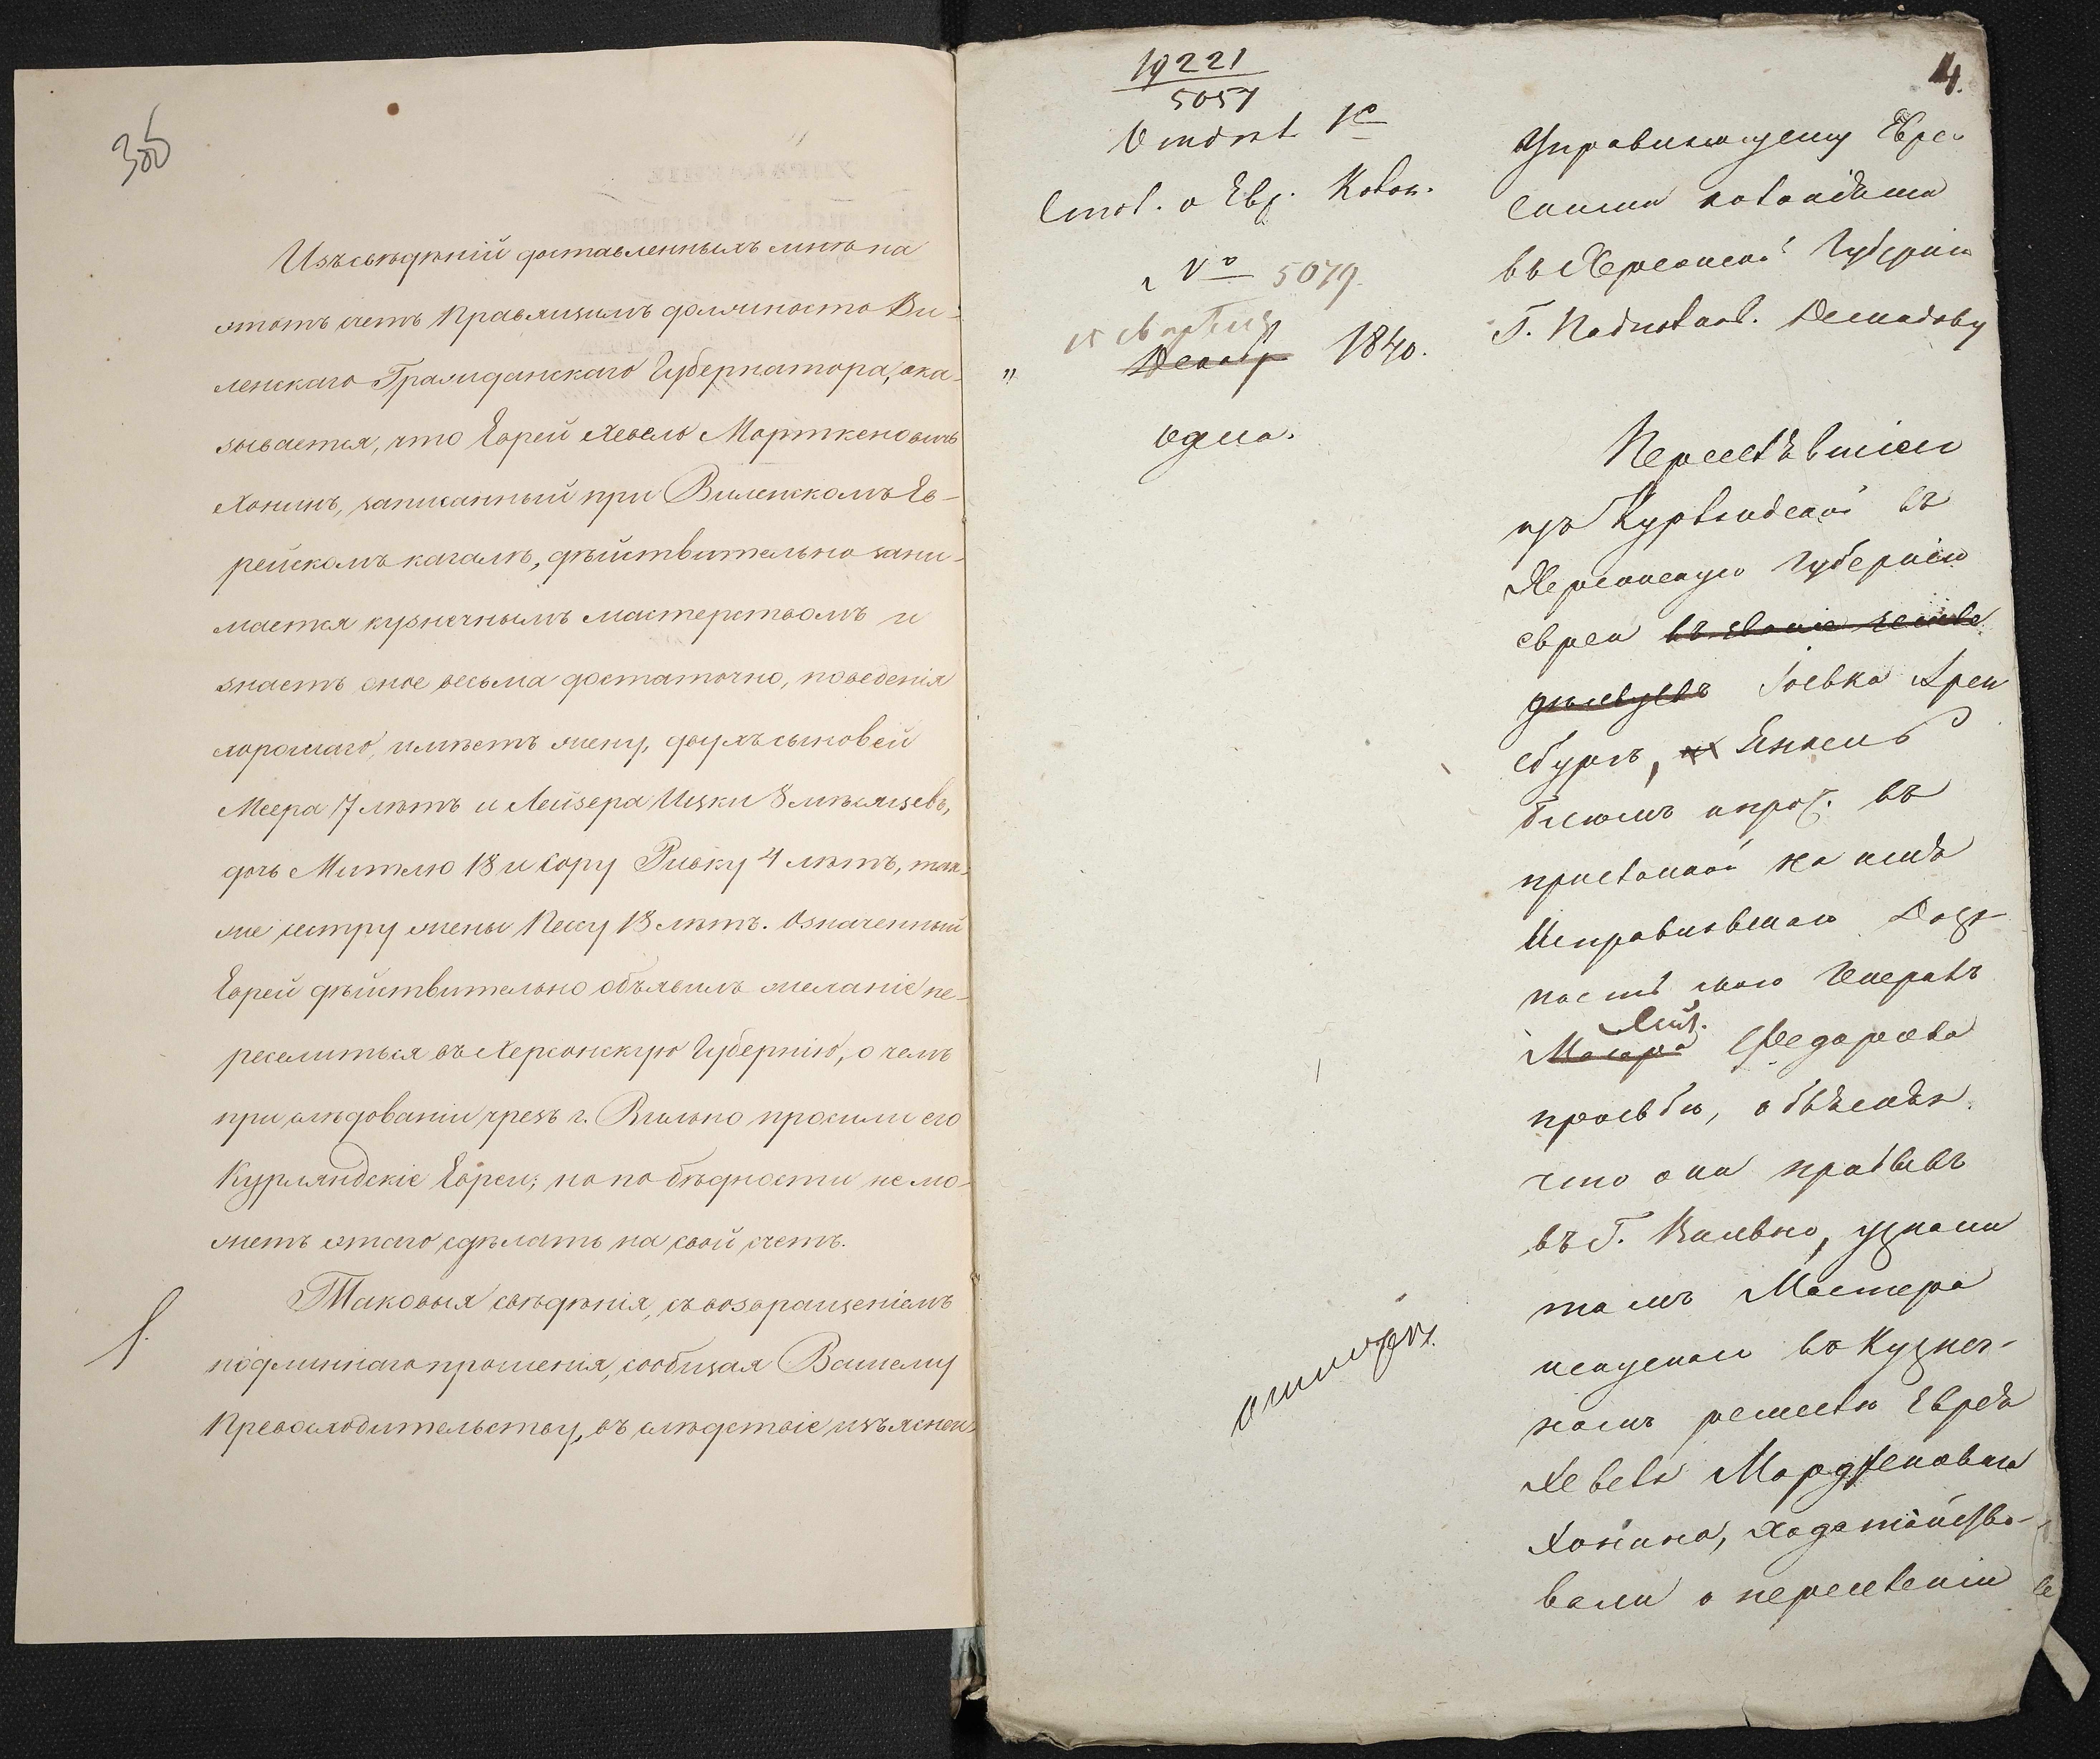 Изъ свѣдѣній доставленныхъ мнѣ на
этотъ счетъ Правящимъ должность Ви-
ленскаго Гражданскаго Губернатора, ока-
зывается, что Еврей Хевель Мортхеновичъ
Хонинъ, записанный при Виленскомъ Ев-
рейскомъ кагалѣ, дѣйствительно зани-
мается кузнечнымъ мастерствомъ и
знаетъ оное весьма достаточно, поведенія
хорошаго, имѣетъ жену, двухъ сыновей
Меера 7 лѣтъ и Лейзера Ицки 8 мѣсяцевъ,
дочь Митлю 18 и Сору Ривку 4 лѣтъ, так-
же сестру жены Песу 13 лѣтъ. Означенный
Еврей дѣйствительно объявилъ желаніе пе-
реселиться въ Херсонскую Губернію, о чемъ
при слѣдованіи чрезъ г. Вильно просили его
Курляндскіе Евреи; но по бѣдности не мо-
жетъ этаго сдѣлать на свой счетъ.
Таковыя свѣдѣнія, съ возвращеніемъ
подлиннаго прошенія, сообщая Вашему
Превосходительству, въ слѣдствіе изъяснен-
19221
5057
4.
Отдѣл. 1е
Стол. о Евр. Колон.
№ 5079.
15 Декабр 1840.
Одна.
Управляющему Евре
скими колоніями
въ Херсонской Губерніи
Г. Подполков. Демидову
Переселѣвшіеся
изъ Курляндской въ
Херсонскую Губернію
евреи въ званіе земле
дѣльцевъ Іоевка Арен
сбургъ, Янкель
Блюмъ и проч. въ
присланной на имя
Исправлявшаго Долж
ность мою Генералъ
Маіора Лейт. Федорова
прозьбѣ, объясняя
что они пробывъ
въ Г. Вильно, узнали
тамъ Мастера
искуснаго въ Кузнеч-
номъ ремеслѣ Еврея
Хевеля Мордхеновича
Хонина, ходатайство-
вали о переселеніи